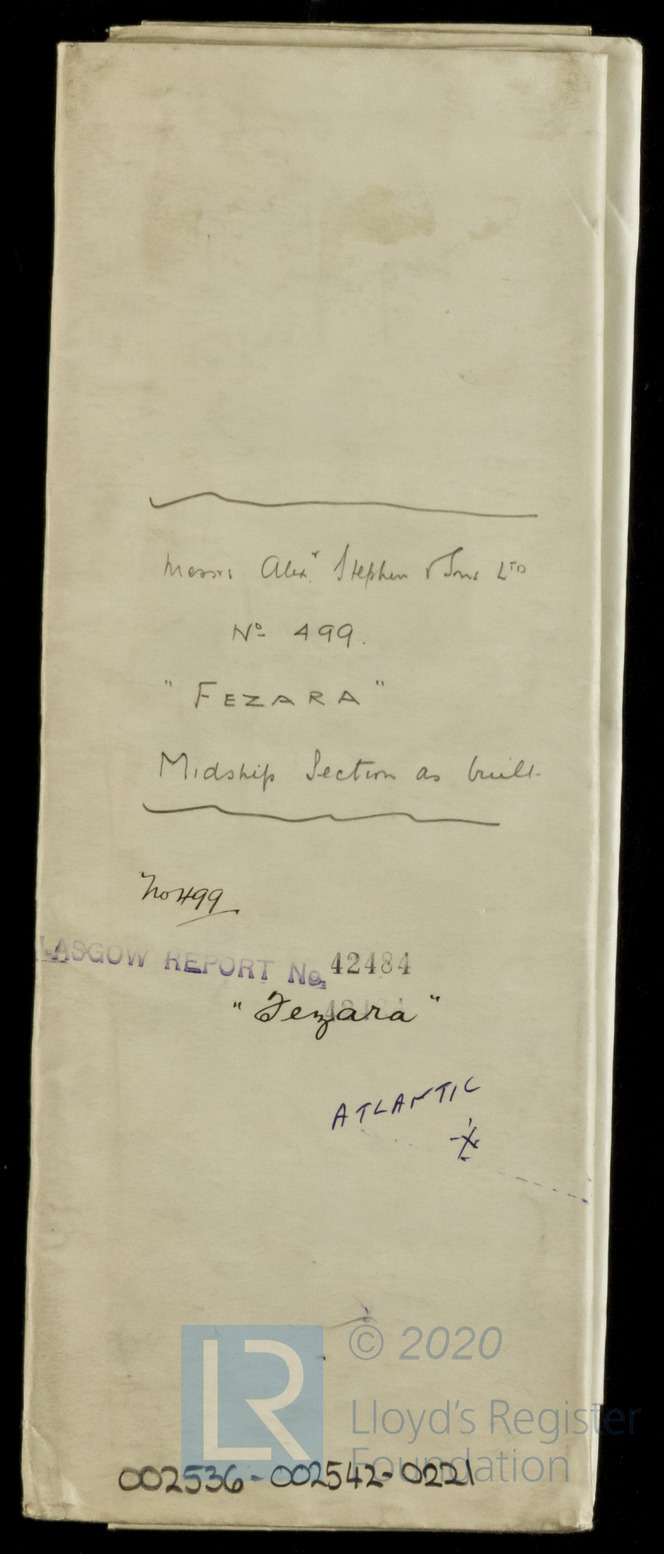 Messrs Alexr Stephen & Sons LTD
No 499.
"FEZARA"
Midship Section as built.
No 499
LASGOW REPORT No. 42484
"Fezara"
ATLANTIC
LR
© 2020
Lloyd's Register
Foundation
002536-002542-0221